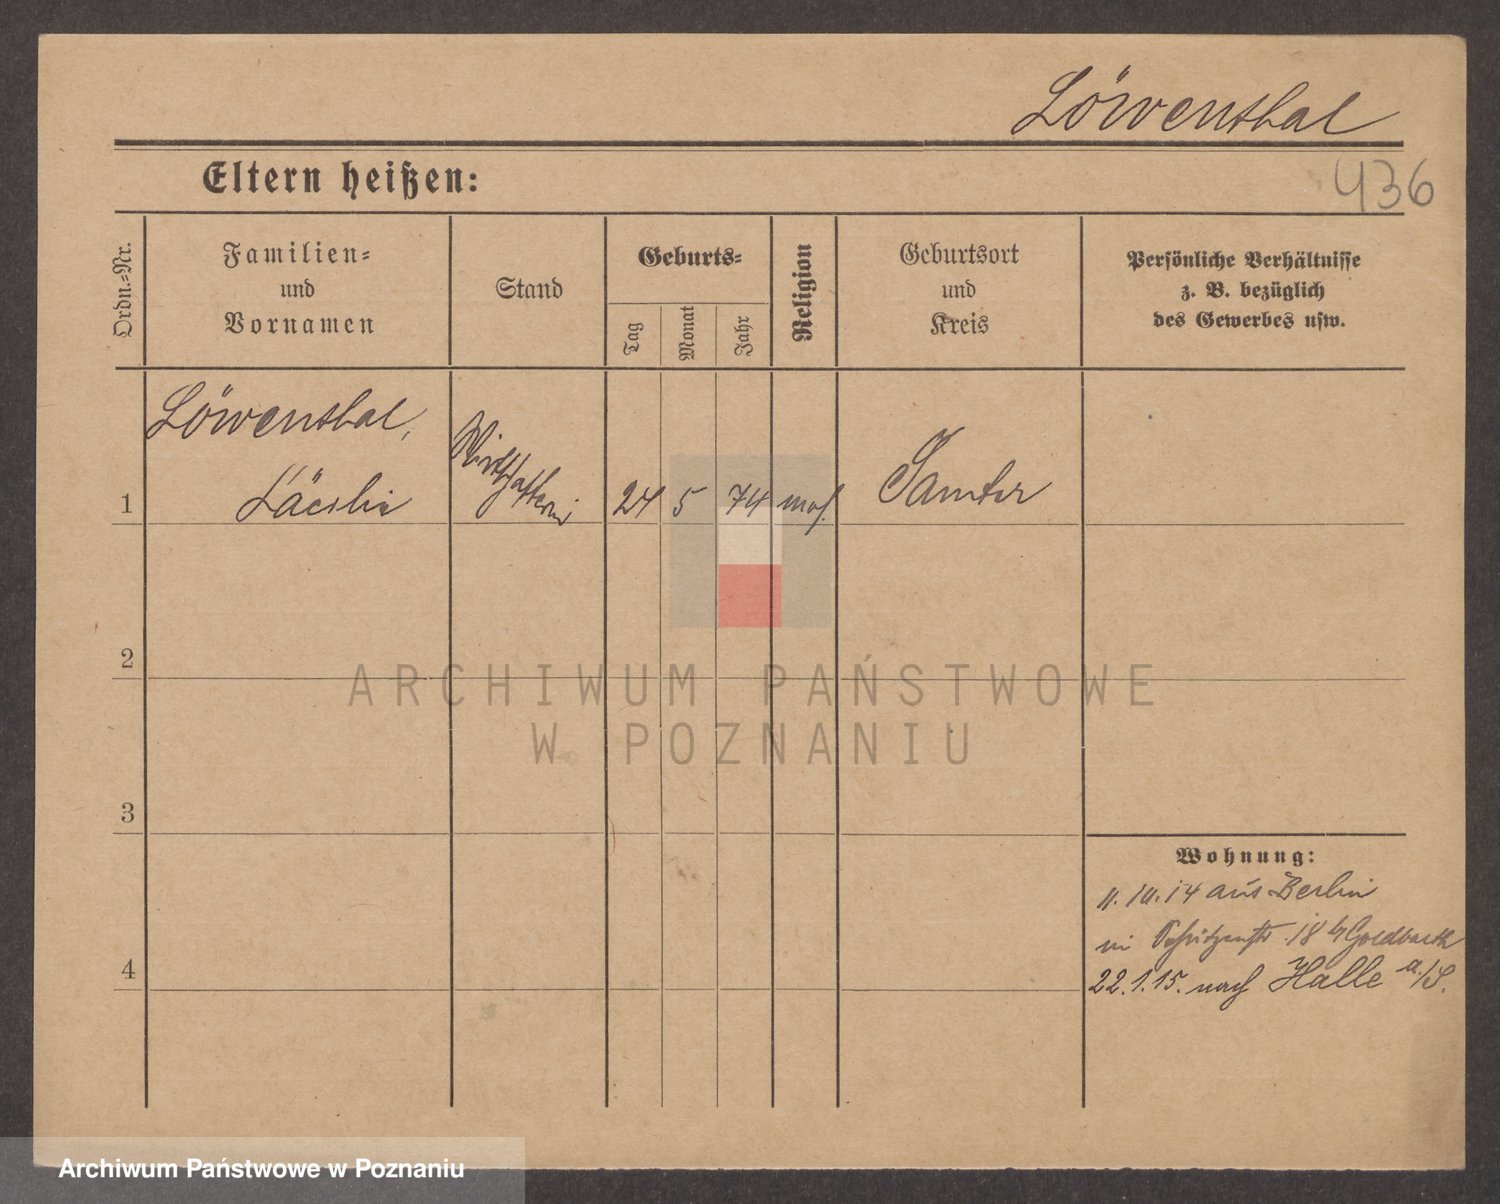 Löwenthal
436
Eltern heißen:
Ordn.-Nr.
Familien-
und
Vornamen
Stand
Geburts-
Tag
Monat
Jahr
Religion
Geburtsort
und
Kreis
Persönliche Verhältnisse
z. B. bezüglich
des Gewerbes usw.
Löwenthal,
1
24 5 74 mos.
Samter
2
ARCHIWUM PAŃSTWOWE
W POZNANIU
3
Wohnung:
11.10.14 aus Berlin
Schützenstr. 18
4
22.1.15. nach Halle a./S.
Archiwum Państwowe w Poznaniu